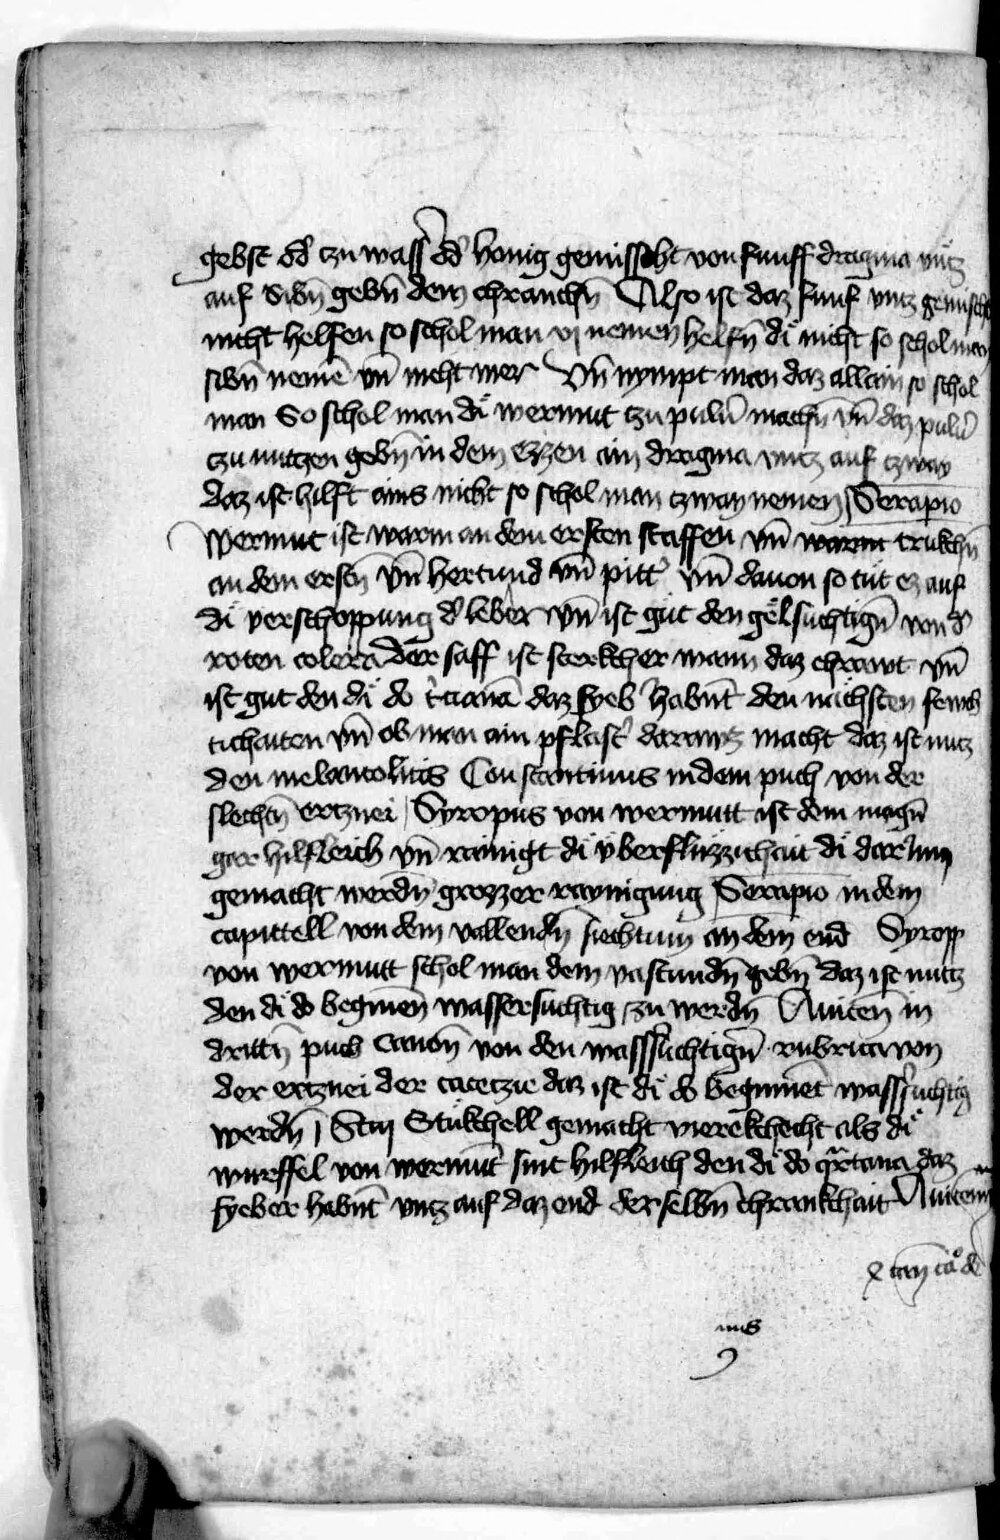 gebst od̛ czu wass̛ od̛ honig gemisscht von funff dragma vncz
auf sibn̄ gebn̄ dem chranchn̄ Also ist daz funf vntz gemischt
nicht helfen so schol man vj nemen helfn̄ di̊ nicht so schol man
sibn̄ nemē vn̄ nicht mer Vn̄ nympt man daz allain so schol
man So schol man di̊ wermut czu pulư machn̄ vn̄ daz pulư
czu nutzen gebn̄ in dem ezzen ain dragma vntz auf czway
daz ist hilft ains nicht so schol man czway nemen Serapio
Wermut ist warm an dem ersten staffen vn̄ warm trukchn̄
an dem erstn̄ vn̄ hertund vn̄ pitt̛ vn̄ dauon so tu̍t ez auf
di̊ verschoppung d̛ leber vn̄ ist gu̍t den ge̍lsuchtign̄ von d̛
roten colera der saff ist sterkcher wann daz chrawt vn̄
ist gut den di̊ do t̛cianā daz fyeb̛ habnt̄ den nächsten fewch
tichaiten vn̄ ob man ain pflast̛ darawz macht daz ist nucz
den melancolicis Constantinus in dem puch von der
slechtn̄ ertznei Syropus von wermutt ist dem magn̄
gar hilfleich vn̄ rainigt di̊ v̍berflüzzichait di̊ dar Inn
gemacht werdn̄ grozzer raynigung Serapio in dem
capittell von dem vallendn̄ siechtum an dem end Syropp
von wermutt schol man dem vastundn̄ gebn̄ daz ist nutz
den di̊ do beginen̄ wassersuchtig zu werdn̄ Auicen̄ in
drittn̄ puch canon̄ von den wasss̛uchtign̄ rubrica von
der ertznei der cacetzie daz ist di̊ do beginnet̄ wasss̛uchtig
werdn̄ Stukhell gemacht vierekchecht als di̊
wurffel von wermut̄ sint hilfleich den di̊ do qᷓrtana daz
fyeber habnt̄ vntz auf daz end der selbn̄ chrankchait Auicenn
cao de
nus